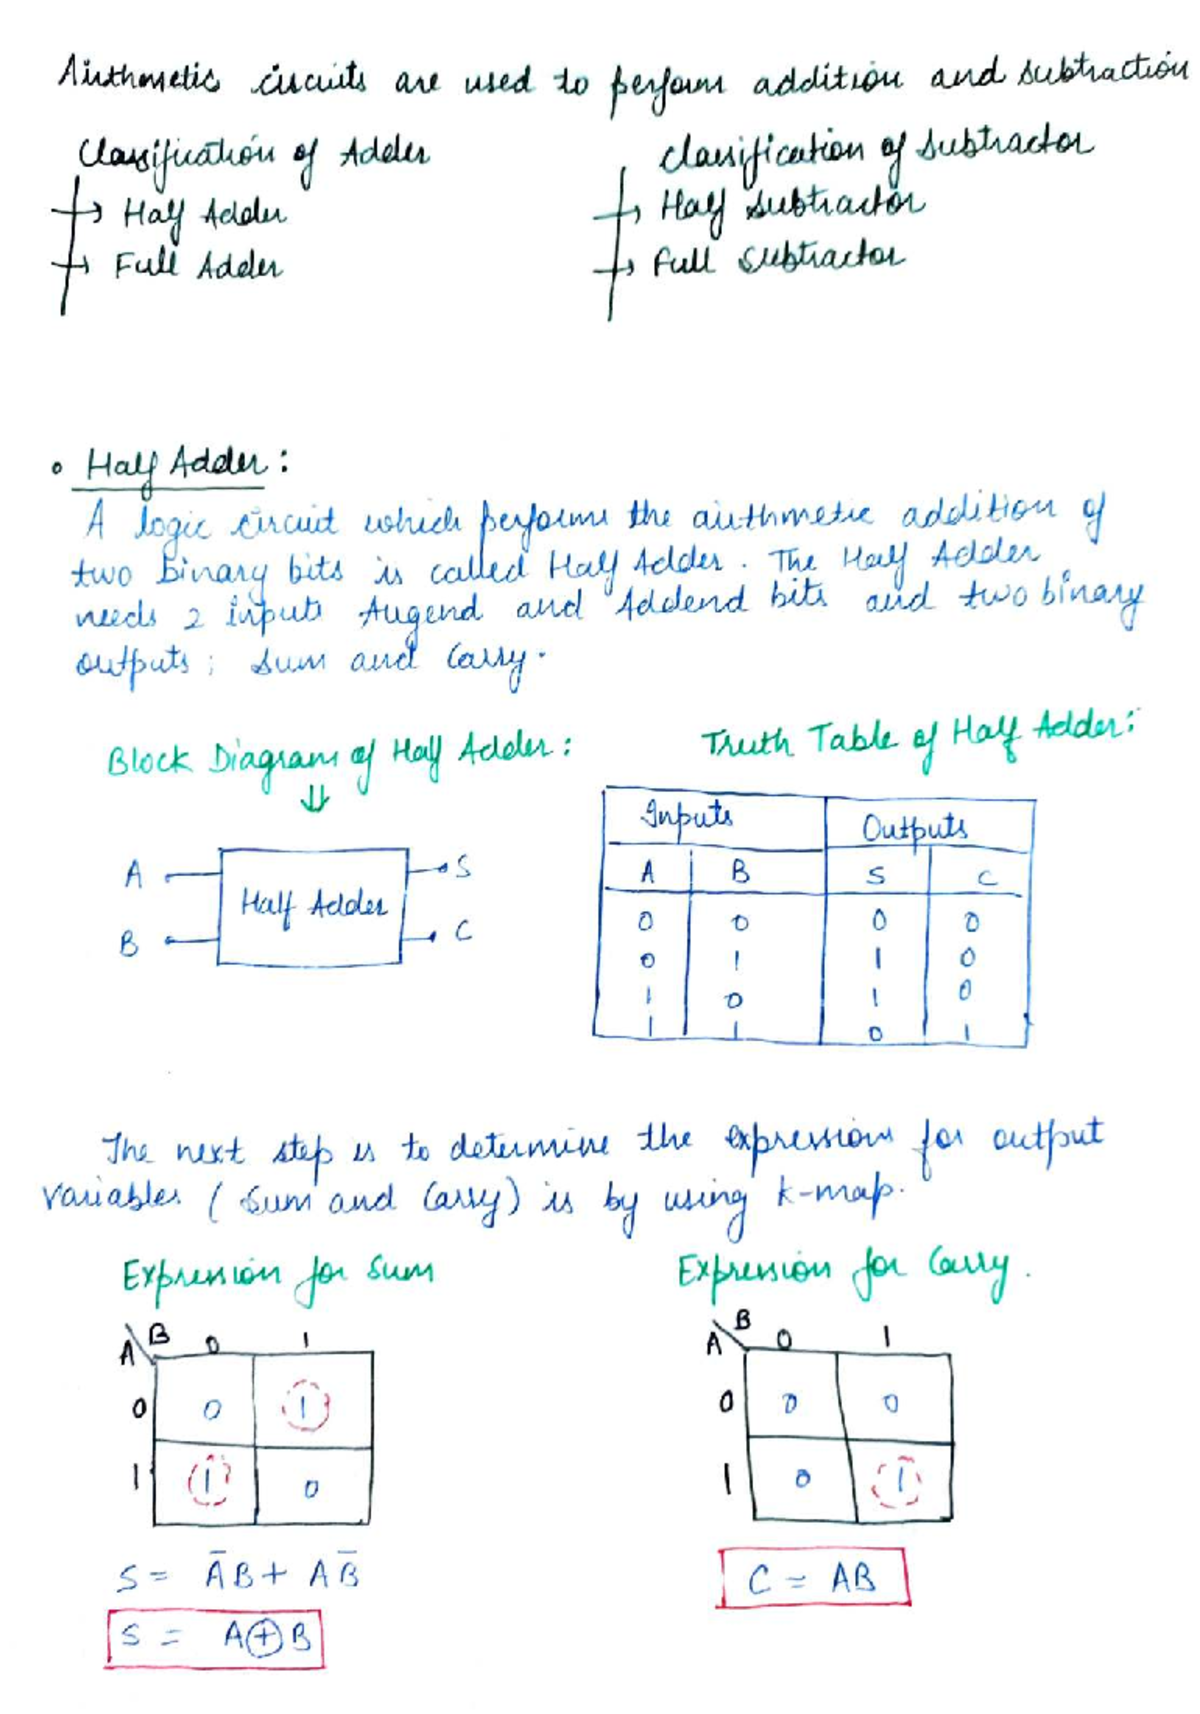 Arithmetic circuits are used to perform addition and subtraction
Classification of Adder
→ Half Adder
→ Full Adder
Classification of Subtractor
→ Half Subtractor
→ Full Subtractor
• Half Adder :
A logic circuit which performs the arithmetic addition of
two binary bits is called Half Adder. The Half Adder
needs 2 inputs Augend and Addend bits and two binary
outputs ; Sum and Carry.
Block Diagram of Half Adder :
⇓
A
B
Half Adder
S
C
Truth Table of Half Adder :
Inputs Outputs
A B S C
0 0 0 0
0 1 1 0
1 0 1 0
1 1 0 1
The next step is to determine the expressions for output
variables (Sum and Carry) is by using k-map.
Expression for Sum
A B 0 1
0 0 1
1 1 0
S = A̅B + AB̅
S = A⊕B
Expression for Carry.
A B 0 1
0 0 0
1 0 1
C = AB